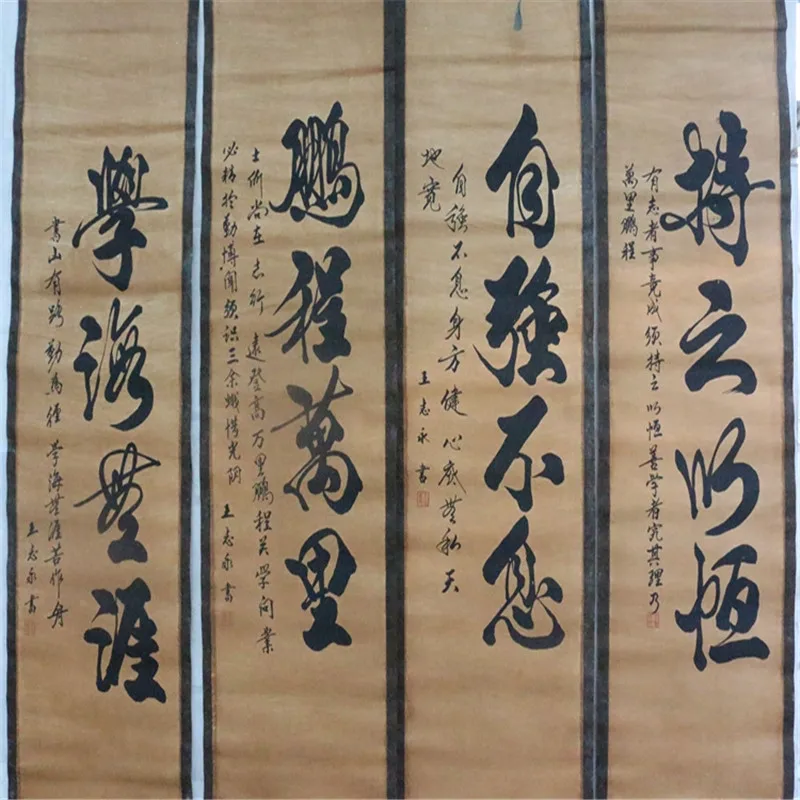 持之以恆
有志者事竟成须持之以恆善学者究其理乃
萬里鵬程
自強不息
自強不息身方健心底無私天
地寬
王志永書
鵬程萬里
士所尚在志行遠登高万里鵬程关学问業
必精於勤博闻强识三余惜光阴
王志永書
學海無涯
書山有路勤為徑学海無涯苦作舟
王志永書